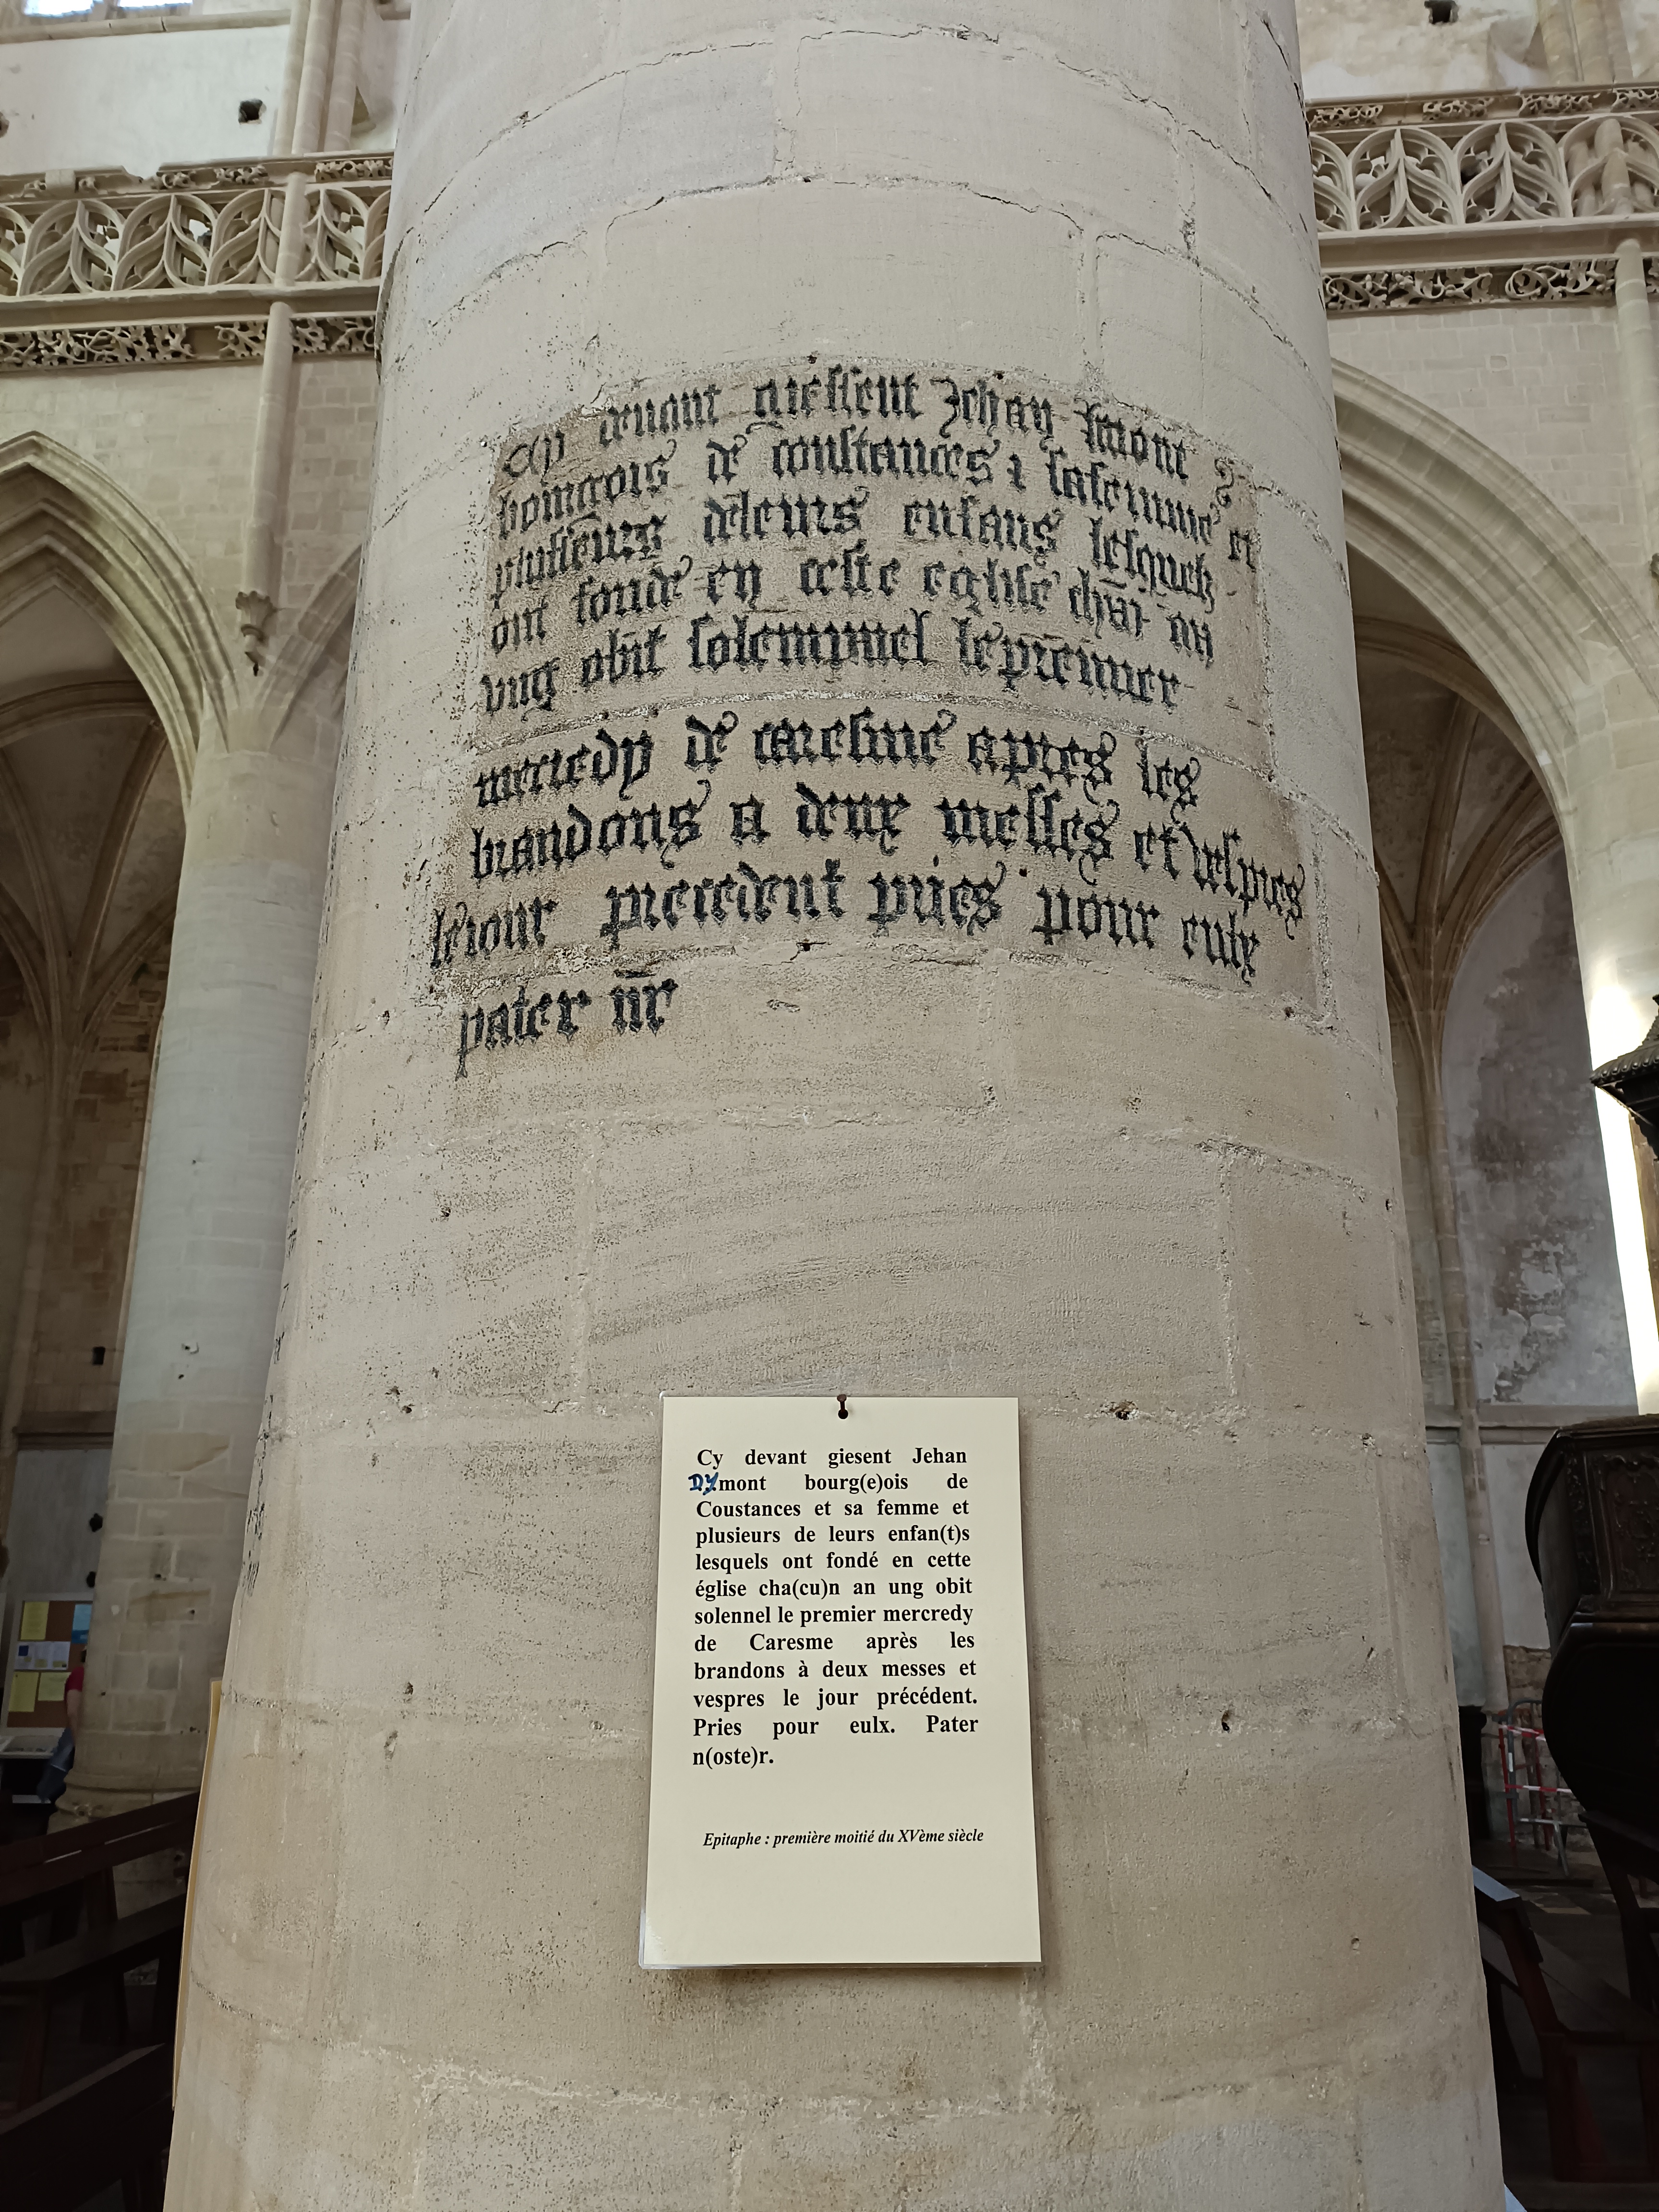 Cy devant giessent Jehan
bourgois de coustances ⁊ sa femme et
plusseurs de leurs enfans lesquelz
ont fonde en ceste eglise chūn an
ung obit solempnel le premier
mercredy de caresme apres les
brandons a deux messes et vespres
le iour precedent pries pour eulx
pater nr̄
Cy devant giesent Jehan
DYmont bourg(e)ois de
Coustances et sa femme et
plusieurs de leurs enfan(t)s
lesquels ont fondé en cette
église cha(cu)n an ung obit
solennel le premier mercredy
de Caresme après les
brandons à deux messes et
vespres le jour précédent.
Pries pour eulx. Pater
n(oste)r.
Epitaphe : première moitié du XVème siècle